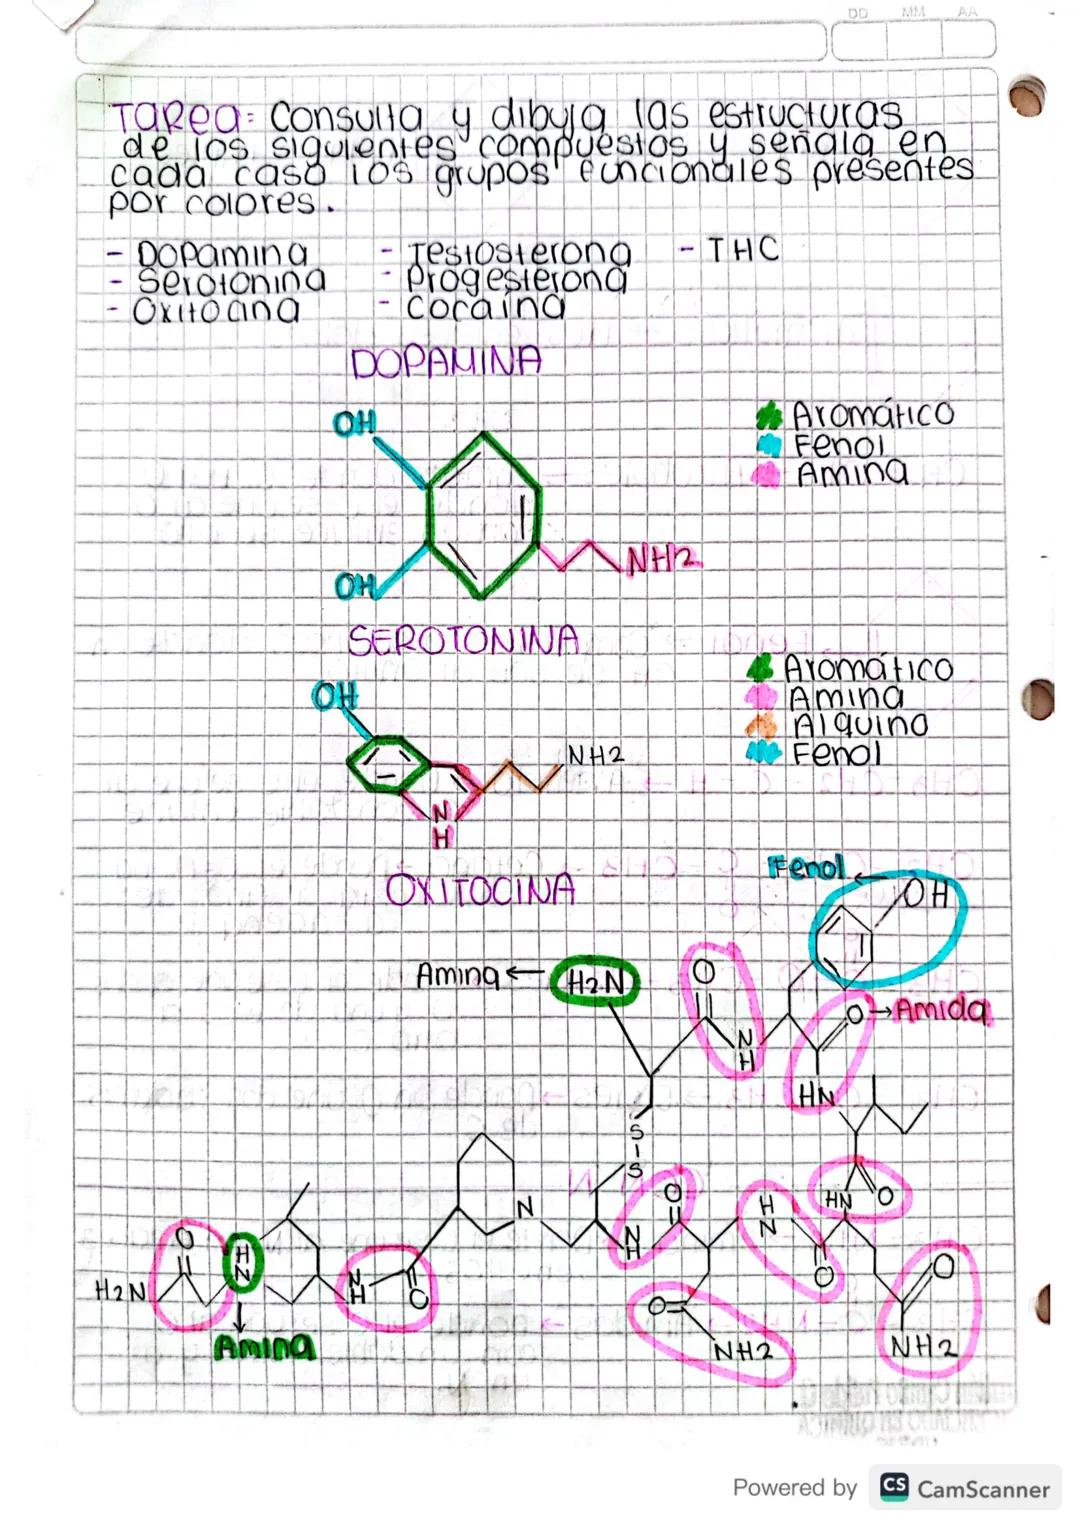 DD MM AA
Tarea: Consulta y dibuja las estructuras
de los siguientes compuestos y señala en
cada caso los grupos funcionales presentes
por colores.
- Dopamina - Testosterona - THC
- Serotonina - Progesterona
- Oxitocina - Cocaína
DOPAMINA
OH
Aromático
Fenol
Amina
NH2
OH
SEROTONINA
OH
Aromático
Amina
Alquino
Fenol
NH2
N
H
OXITOCINA
Fenol
OH
Amina
H2N
O
N
H
O
Amida
HN
S
S
HN
O
O
N
H
H
N
O
N
O
H2N
H
N
N
H
O
O
NH2
O
NH2
Amina
Powered by CS CamScanner